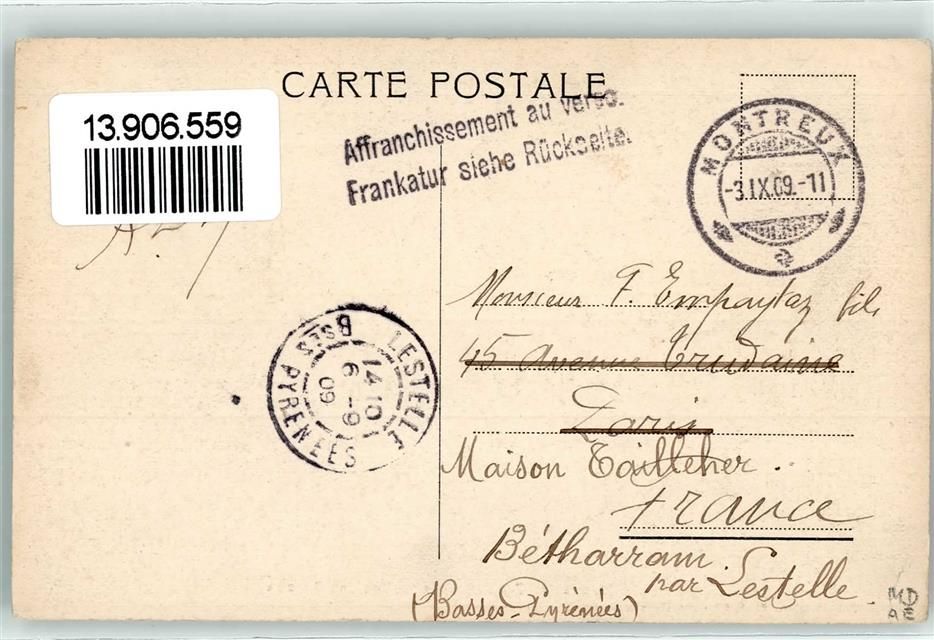 CARTE POSTALE
13.906.559
Affranchissement au verso.
Frankatur siehe Rückseite.
MONTREUX
-3.IX.09.-11
Monsieur F. Empaytaz fils
45 Avenue Trudaine
Paris
Maison Tailleher.
France
Bétharram
par Lestelle.
(Basses-Pyrénées)
LESTELLE
Bses PYRENEES
14 10
6 -9
09